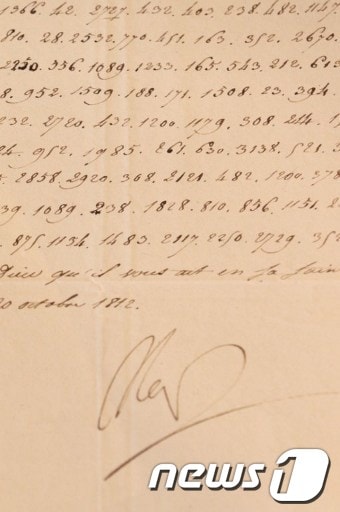 1366. 42. 2727. 432. 403. 238. 482. 1147
810. 28. 2532. 770. 451. 163. 352. 2670.
2250. 356. 1089. 1233. 165. 543. 212. 613
8. 952. 1599. 188. 171. 1508. 23. 394.
232. 2720. 432. 1200. 1179. 308. 244. 1
24. 952. 1985. 261. 630. 3138. 521. 3
2858. 2920. 368. 2121. 482. 1200. 278
39. 1089. 238. 1828. 810. 856. 1151. 2
. 875. 1134. 1483. 2117. 2250. 2729. 352
Dieu qu'il vous ait en sa Sain
20 octobre 1812.
news1